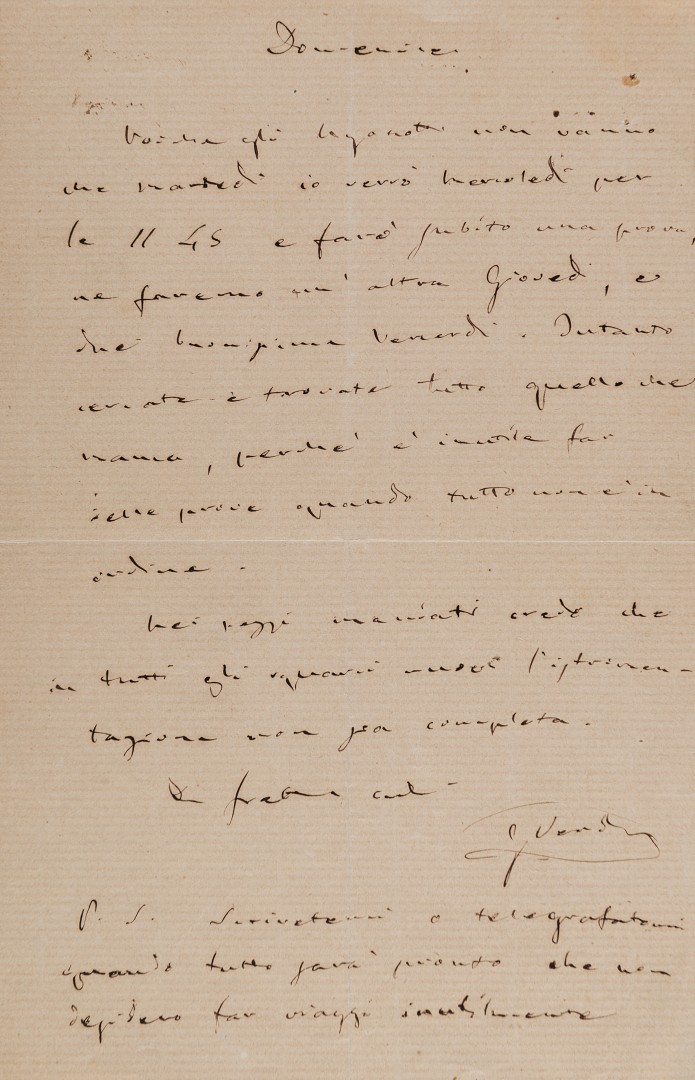 Domenica
Poiche gli Ugonotti non vanno
che martedì io verrò Mercoledì per
le 11 45 e farò subito una prova,
ne faremo un' altra Giovedì, e
due buonissime Venerdì. Intanto
cercate e trovate tutto quello che
manca, perchè è inutile far
delle prove quando tutto non è in
ordine.
Nei pezzi mandati credo che
in tutti gli squarci nuovi l'istrumen-
tazione non sia completa.
Di fretta
G Verdi
P. S. Scrivetemi o telegrafatemi
quando tutto sarà pronto che non
desidero far viaggi inutilmente